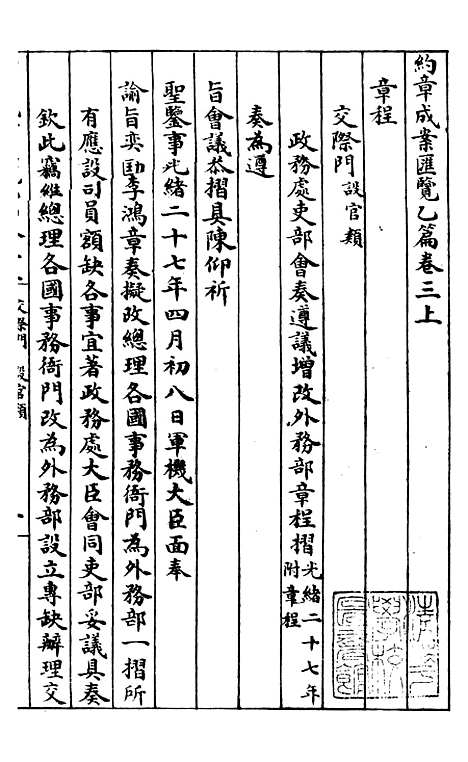 約章成案匯覽乙篇卷三上
章程
交際門 設官類
政務處吏部會奏遵議增改外務部章程摺 光緒二十七年附章程
奏為遵
旨會議恭摺具陳仰祈
聖鑒事光緒二十七年四月初八日軍機大臣面奉
諭旨奕劻李鴻章奏擬改總理各國事務衙門為外務部一摺所
有應設司員額缺各事宜著政務處大臣會同吏部妥議具奏
欽此竊維總理各國事務衙門改為外務部設立專缺辦理交
交際門 設官類